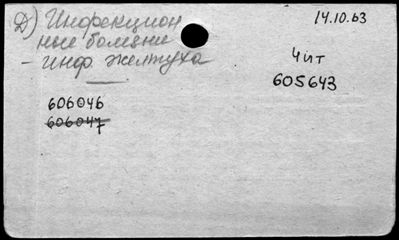 Д) Инфекцион
ные болезни
- инф желтуха
14.10.63
Чит
605643
606046
606047